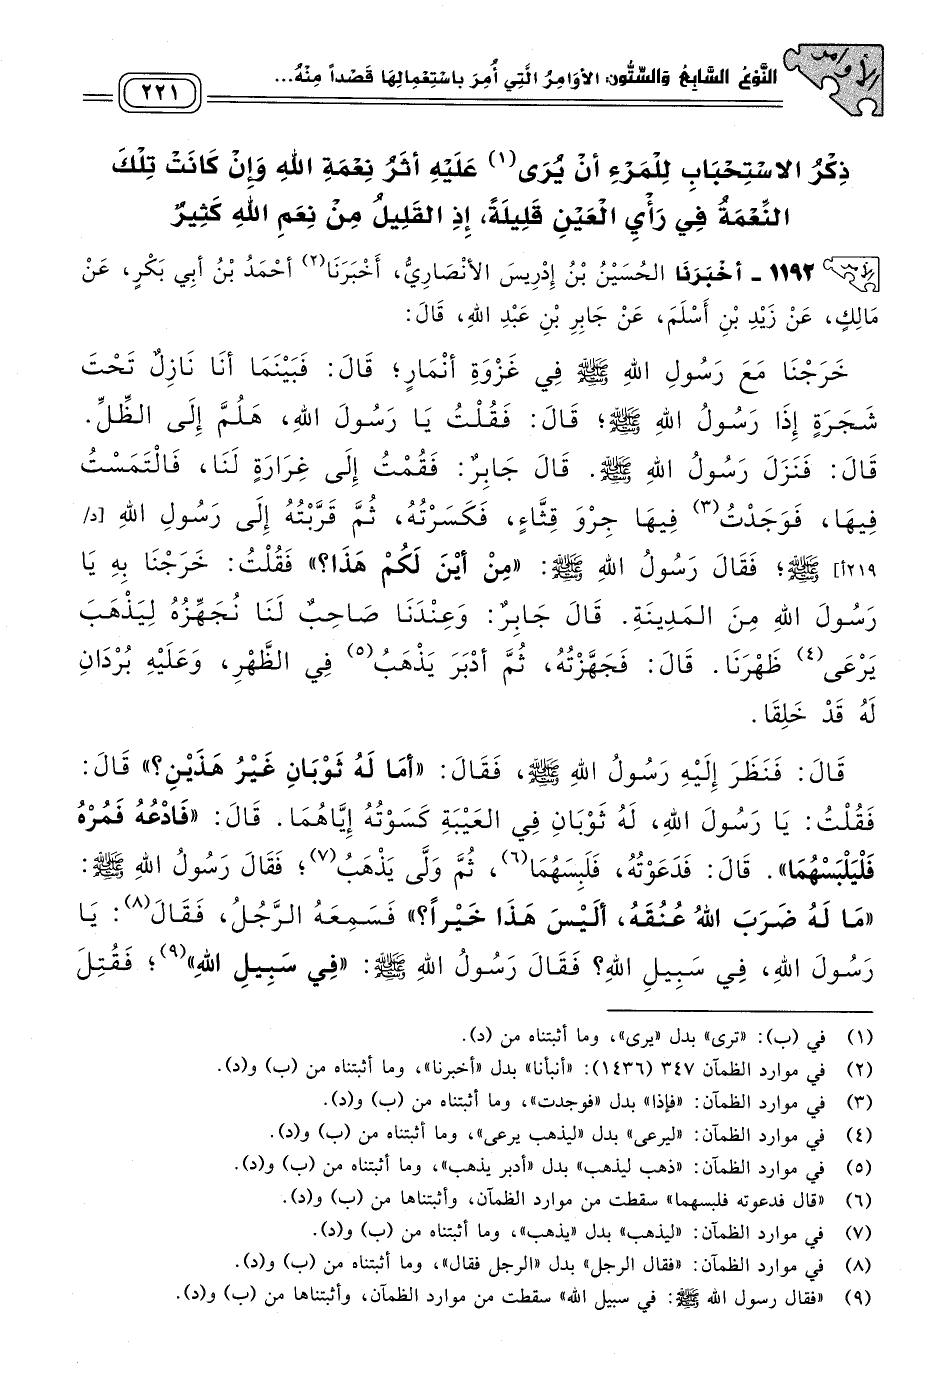 الأوامر
النَّوْعُ السَّابِعُ وَالسِّتُّونَ: الأَوَامِرُ الَّتِي أُمِرَ بِاسْتِعْمَالِهَا قَصْداً مِنْهُ...
٢٢١
ذِكْرُ الاسْتِحْبَابِ لِلْمَرْءِ أَنْ يُرَى(١) عَلَيْهِ أَثَرُ نِعْمَةِ اللهِ وَإِنْ كَانَتْ تِلْكَ
النِّعْمَةُ فِي رَأْيِ الْعَيْنِ قَلِيلَةً، إِذِ القَلِيلُ مِنْ نِعَمِ اللهِ كَثِيرٌ
الأوامر ١١٩٢ - أَخْبَرَنَا الحُسَيْنُ بْنُ إِدْرِيسَ الأَنْصَارِيُّ، أَخْبَرَنَا(٢) أَحْمَدُ بْنُ أَبِي بَكْرٍ، عَنْ
مَالِكٍ، عَنْ زَيْدِ بْنِ أَسْلَمَ، عَنْ جَابِرِ بْنِ عَبْدِ اللهِ، قَالَ:
خَرَجْنَا مَعَ رَسُولِ اللهِ ﷺ فِي غَزْوَةِ أَنْمَارٍ؛ قَالَ: فَبَيْنَمَا أَنَا نَازِلٌ تَحْتَ
شَجَرَةٍ إِذَا رَسُولُ اللهِ ﷺ؛ قَالَ: فَقُلْتُ يَا رَسُولَ اللهِ، هَلُمَّ إِلَى الظِّلِّ.
قَالَ: فَنَزَلَ رَسُولُ اللهِ ﷺ. قَالَ جَابِرٌ: فَقُمْتُ إِلَى غِرَارَةٍ لَنَا، فَالْتَمَسْتُ
فِيهَا، فَوَجَدْتُ(٣) فِيهَا جِرْوَ قِثَّاءٍ، فَكَسَرْتُهُ، ثُمَّ قَرَّبْتُهُ إِلَى رَسُولِ اللهِ [د/
٢١٩أ] ﷺ؛ فَقَالَ رَسُولُ اللهِ ﷺ: «مِنْ أَيْنَ لَكُمْ هَذَا؟» فَقُلْتُ: خَرَجْنَا بِهِ يَا
رَسُولَ اللهِ مِنَ المَدِينَةِ. قَالَ جَابِرٌ: وَعِنْدَنَا صَاحِبٌ لَنَا نُجَهِّزُهُ لِيَذْهَبَ
يَرْعَى(٤) ظَهْرَنَا. قَالَ: فَجَهَّزْتُهُ، ثُمَّ أَدْبَرَ يَذْهَبُ(٥) فِي الظَّهْرِ، وَعَلَيْهِ بُرْدَانِ
لَهُ قَدْ خَلِقَا.
قَالَ: فَنَظَرَ إِلَيْهِ رَسُولُ اللهِ ﷺ، فَقَالَ: «أَمَا لَهُ ثَوْبَانِ غَيْرُ هَذَيْنِ؟» قَالَ:
فَقُلْتُ: يَا رَسُولَ اللهِ، لَهُ ثَوْبَانِ فِي العَيْبَةِ كَسَوْتُهُ إِيَّاهُمَا. قَالَ: «فَادْعُهُ فَمُرْهُ
فَلْيَلْبَسْهُمَا». قَالَ: فَدَعَوْتُهُ، فَلَبِسَهُمَا(٦)، ثُمَّ وَلَّى يَذْهَبُ(٧)؛ فَقَالَ رَسُولُ اللهِ ﷺ:
«مَا لَهُ ضَرَبَ اللهُ عُنُقَهُ، أَلَيْسَ هَذَا خَيْراً؟» فَسَمِعَهُ الرَّجُلُ، فَقَالَ(٨): يَا
رَسُولَ اللهِ، فِي سَبِيلِ اللهِ؟ فَقَالَ رَسُولُ اللهِ ﷺ: «فِي سَبِيلِ اللهِ»(٩)؛ فَقُتِلَ
(١) في (ب): «ترى» بدل «يرى»، وما أثبتناه من (د).
(٢) في موارد الظمآن ٣٤٧ (١٤٣٦): «أنبأنا» بدل «أخبرنا»، وما أثبتناه من (ب) و(د).
(٣) في موارد الظمآن: «فإذا» بدل «فوجدت»، وما أثبتناه من (ب) و(د).
(٤) في موارد الظمآن: «ليرعى» بدل «ليذهب يرعى»، وما أثبتناه من (ب) و(د).
(٥) في موارد الظمآن: «ذهب ليذهب» بدل «أدبر يذهب»، وما أثبتناه من (ب) و(د).
(٦) «قال فدعوته فلبسهما» سقطت من موارد الظمآن، وأثبتناها من (ب) و(د).
(٧) في موارد الظمآن: «ليذهب» بدل «يذهب»، وما أثبتناه من (ب) و(د).
(٨) في موارد الظمآن: «فقال الرجل» بدل «الرجل فقال»، وما أثبتناه من (ب) و(د).
(٩) «فقال رسول الله ﷺ: في سبيل الله» سقطت من موارد الظمآن، وأثبتناها من (ب) و(د).